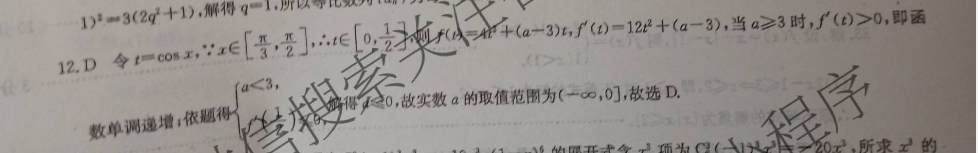 1)²=3(2q²+1),解得q=1,所以等比数
12.D 令t=cos x,∵x∈[π/3,π/2],∴t∈[0,1/2],则f(t)=4t³+(a-3)t,f′(t)=12t²+(a-3),当a≥3时,f′(t)>0,即函
数单调递增;依题得{a<3, 解得a≤0,故实数a的取值范围为(-∞,0],故选D.
的展开式含x³项为 -20x³,所求x³的
搜索
程序